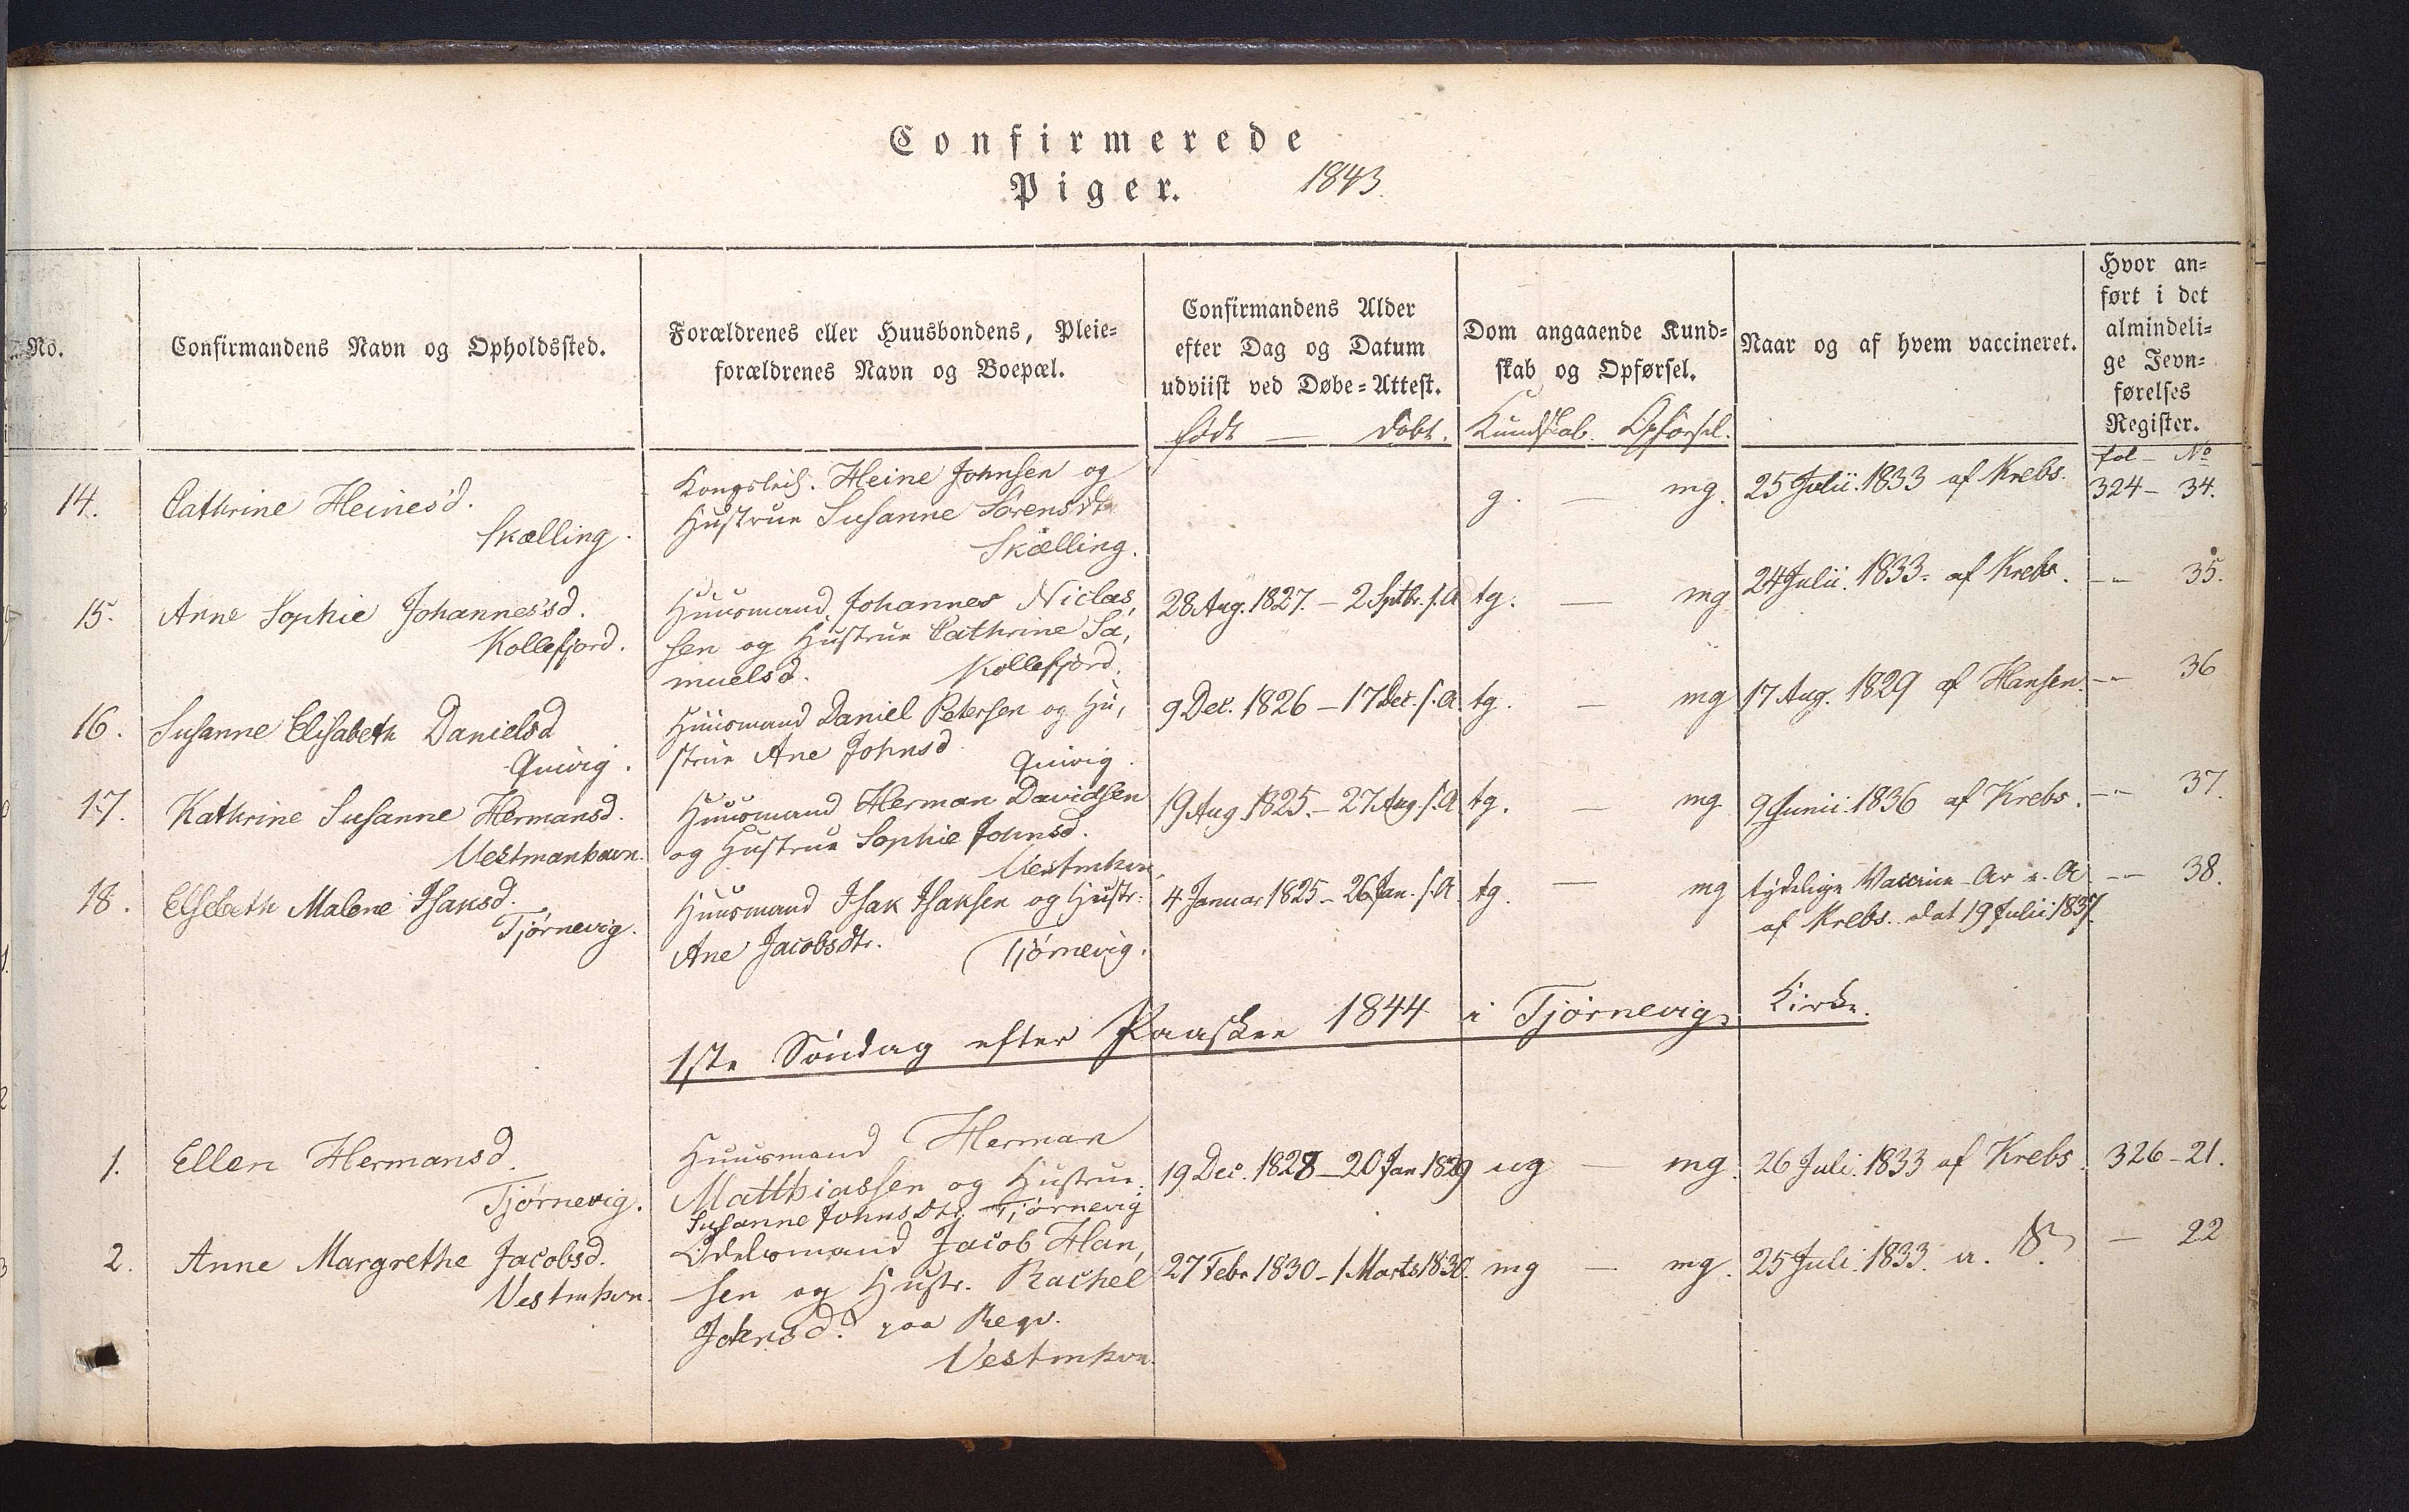 Confirmerede
Piger. 1843.
No.
Confirmandens Navn og Opholdssted.
Forældrenes eller Huusbondens, Pleie=
forældrenes Navn og Boepæl.
Confirmandens Alder
efter Dag og Datum
udviist ved Døbe=Attest.
født — døbt.
Dom angaaende Kund=
skab og Opførsel.
Kundskab. Opførsel.
Naar og af hvem vaccineret.
Hvor an=
ført i det
almindeli=
ge Jevn=
førelses
Register.
fol — No
14.
Cathrine Heinesd.
Skælling.
Heine Johnsen og
Hustrue Susanne Sørensdt
Skælling.
g. — mg.
25 Julii. 1833 af Krebs.
324 — 34.
15.
Anne Sophie Johannesd.
Kollefjord.
Huusmand Johannes Niclas,
sen og Hustrue Cathrine Sa,
muelsd. Kollefjord.
28 Aug. 1827. — 2 Sptbr. s.A
tg. — mg
24 Julii 1833. af Krebs.
-"- 35.
16.
Susanne Elisabeth Danielsd
Quivig.
Huusmand Daniel Petersen og Hu,
strue Ane Johnsd.
Quivig.
9 Dec. 1826 — 17 Dec. s.A
tg. — mg
17 Aug. 1829 af Hansen.
-"- 36
17.
Kathrine Susanne Hermansd.
Vestmanhavn.
Huusmand Herman Davidsen
og Hustrue Sophie Johnsd.
Vestmhvn.
19 Aug. 1825. — 27 Aug. s.A
tg. — mg
9 Junii. 1836 af Krebs.
-"- 37.
18.
Elsebeth Malene Isaksd.
Tjørnevig.
Huusmand Isak Isaksen og Hustr:
Ane Jacobsdtr.
Tjørnevig.
4 Januar 1825 — 26 Jan. s.A.
tg. — mg
tydelige Vaccine Ar
af Krebs. dat 19 Julii 1837.
-"- 38.
1ste Søndag efter Paasken 1844 i Tjørnevigs Kirke.
1.
Ellen Hermansd.
Tjørnevig.
Huusmand Herman
Matthiassen og Hustrue.
Susanne Johnsdtr. Tjørnevig
19 Dec. 1828 — 20 Jan 1829
ug — mg.
26 Juli. 1833 af Krebs.
326 — 21.
2.
Anne Margrethe Jacobsd.
Vestmhvn.
Odelsmand Jacob Han,
sen og Hustr. Rachel
Johnsd. paa
Vestmhvn.
27 Febr 1830 — 1 Marts 1830.
mg — mg.
25 Juli. 1833.
— 22